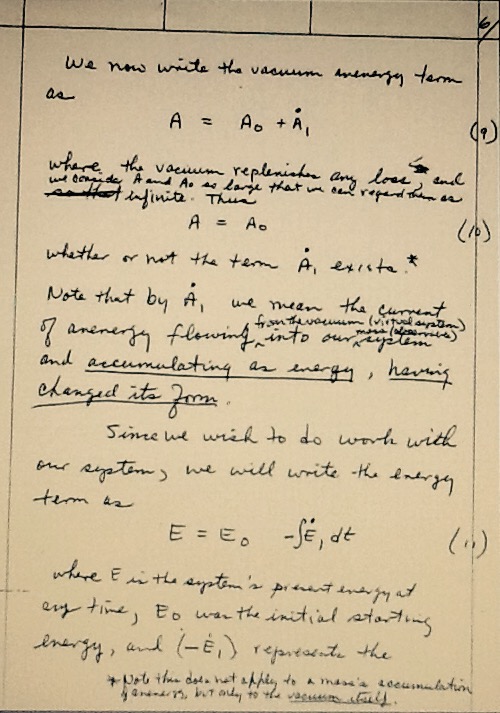 6/
We now write the vacuum anenergy term
as
A = A₀ + Ȧ₁ (9)
where the vacuum replenishes any loss, and
we consider A and A₀ so large that we can regard them as
infinite. Thus
A = A₀ (10)
whether or not the term Ȧ₁ exists.*
Note that by Ȧ₁, we mean the current
from the vacuum (virtual system)
of anenergy flowing into our system
mass (observable)
and accumulating as energy, having
changed its form.
Since we wish to do work with
our system, we will write the energy
term as
E = E₀ -∫Ė₁ dt (11)
where E is the system's present energy at
any time, E₀ was the initial starting
energy, and (-Ė₁) represents the
* Note this does not apply to a mass's accumulation
of anenergy, but only to the vacuum itself.